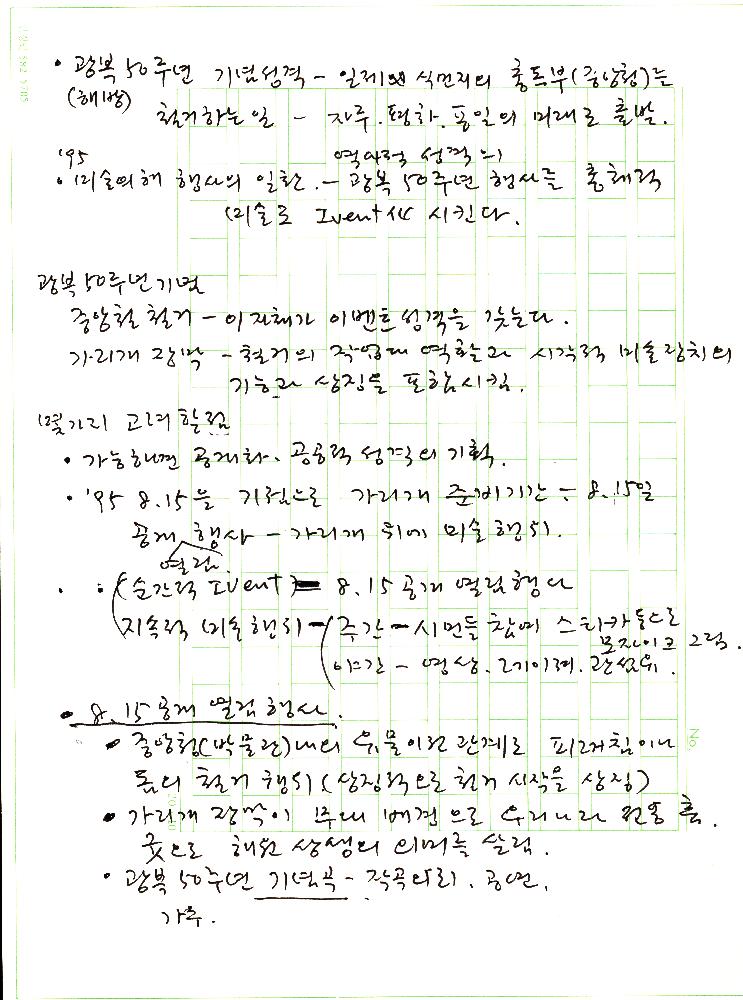 • 광복 50주년 기념성격 - 일제의 식민지의 총독부(중앙청)는
(해방) 철거하는 일 - 자주. 평화. 통일의 미래로 출발.
'95 역사적 성격의
• 미술의해 행사의 일환. - 광복 50주년 행사를 총체적
미술로 Ivent化 시킨다.
광복 50주년 기념
중앙청 철거 - 이 자체가 이벤트 성격을 갖는다.
가리개 장막 - 철거의 작업대 역할과 시각적 미술장치의
기능과 상징을 포함시킴.
몇가지 고려할 점
• 가능하면 공개화. 공공적 성격의 기획.
• '95 8.15을 기점으로 가리개 준비기간 ÷ 8.15일
공개 행사 - 가리개 위에 미술행위.
열림
• : (순간적 Ivent) = 8.15 공개 열림행사
지속적 미술행위 - 주간 - 시민들 참여 스티카 등으로
모자이크 그림.
야간 - 영상. 레이져.
• 8.15 공개 열림 행사.
• 중앙청(박물관)내의 유물이전 관계로 피래침이나
돔의 철거 행위 (상징적으로 철거 시작을 상징)
• 가리개 장막이 무대 배경으로 우리나라 전통 춤.
굿으로 해원 상생의 의미를 살림.
• 광복 50주년 기념곡 - 작곡의뢰. 공연.
가무.
No.